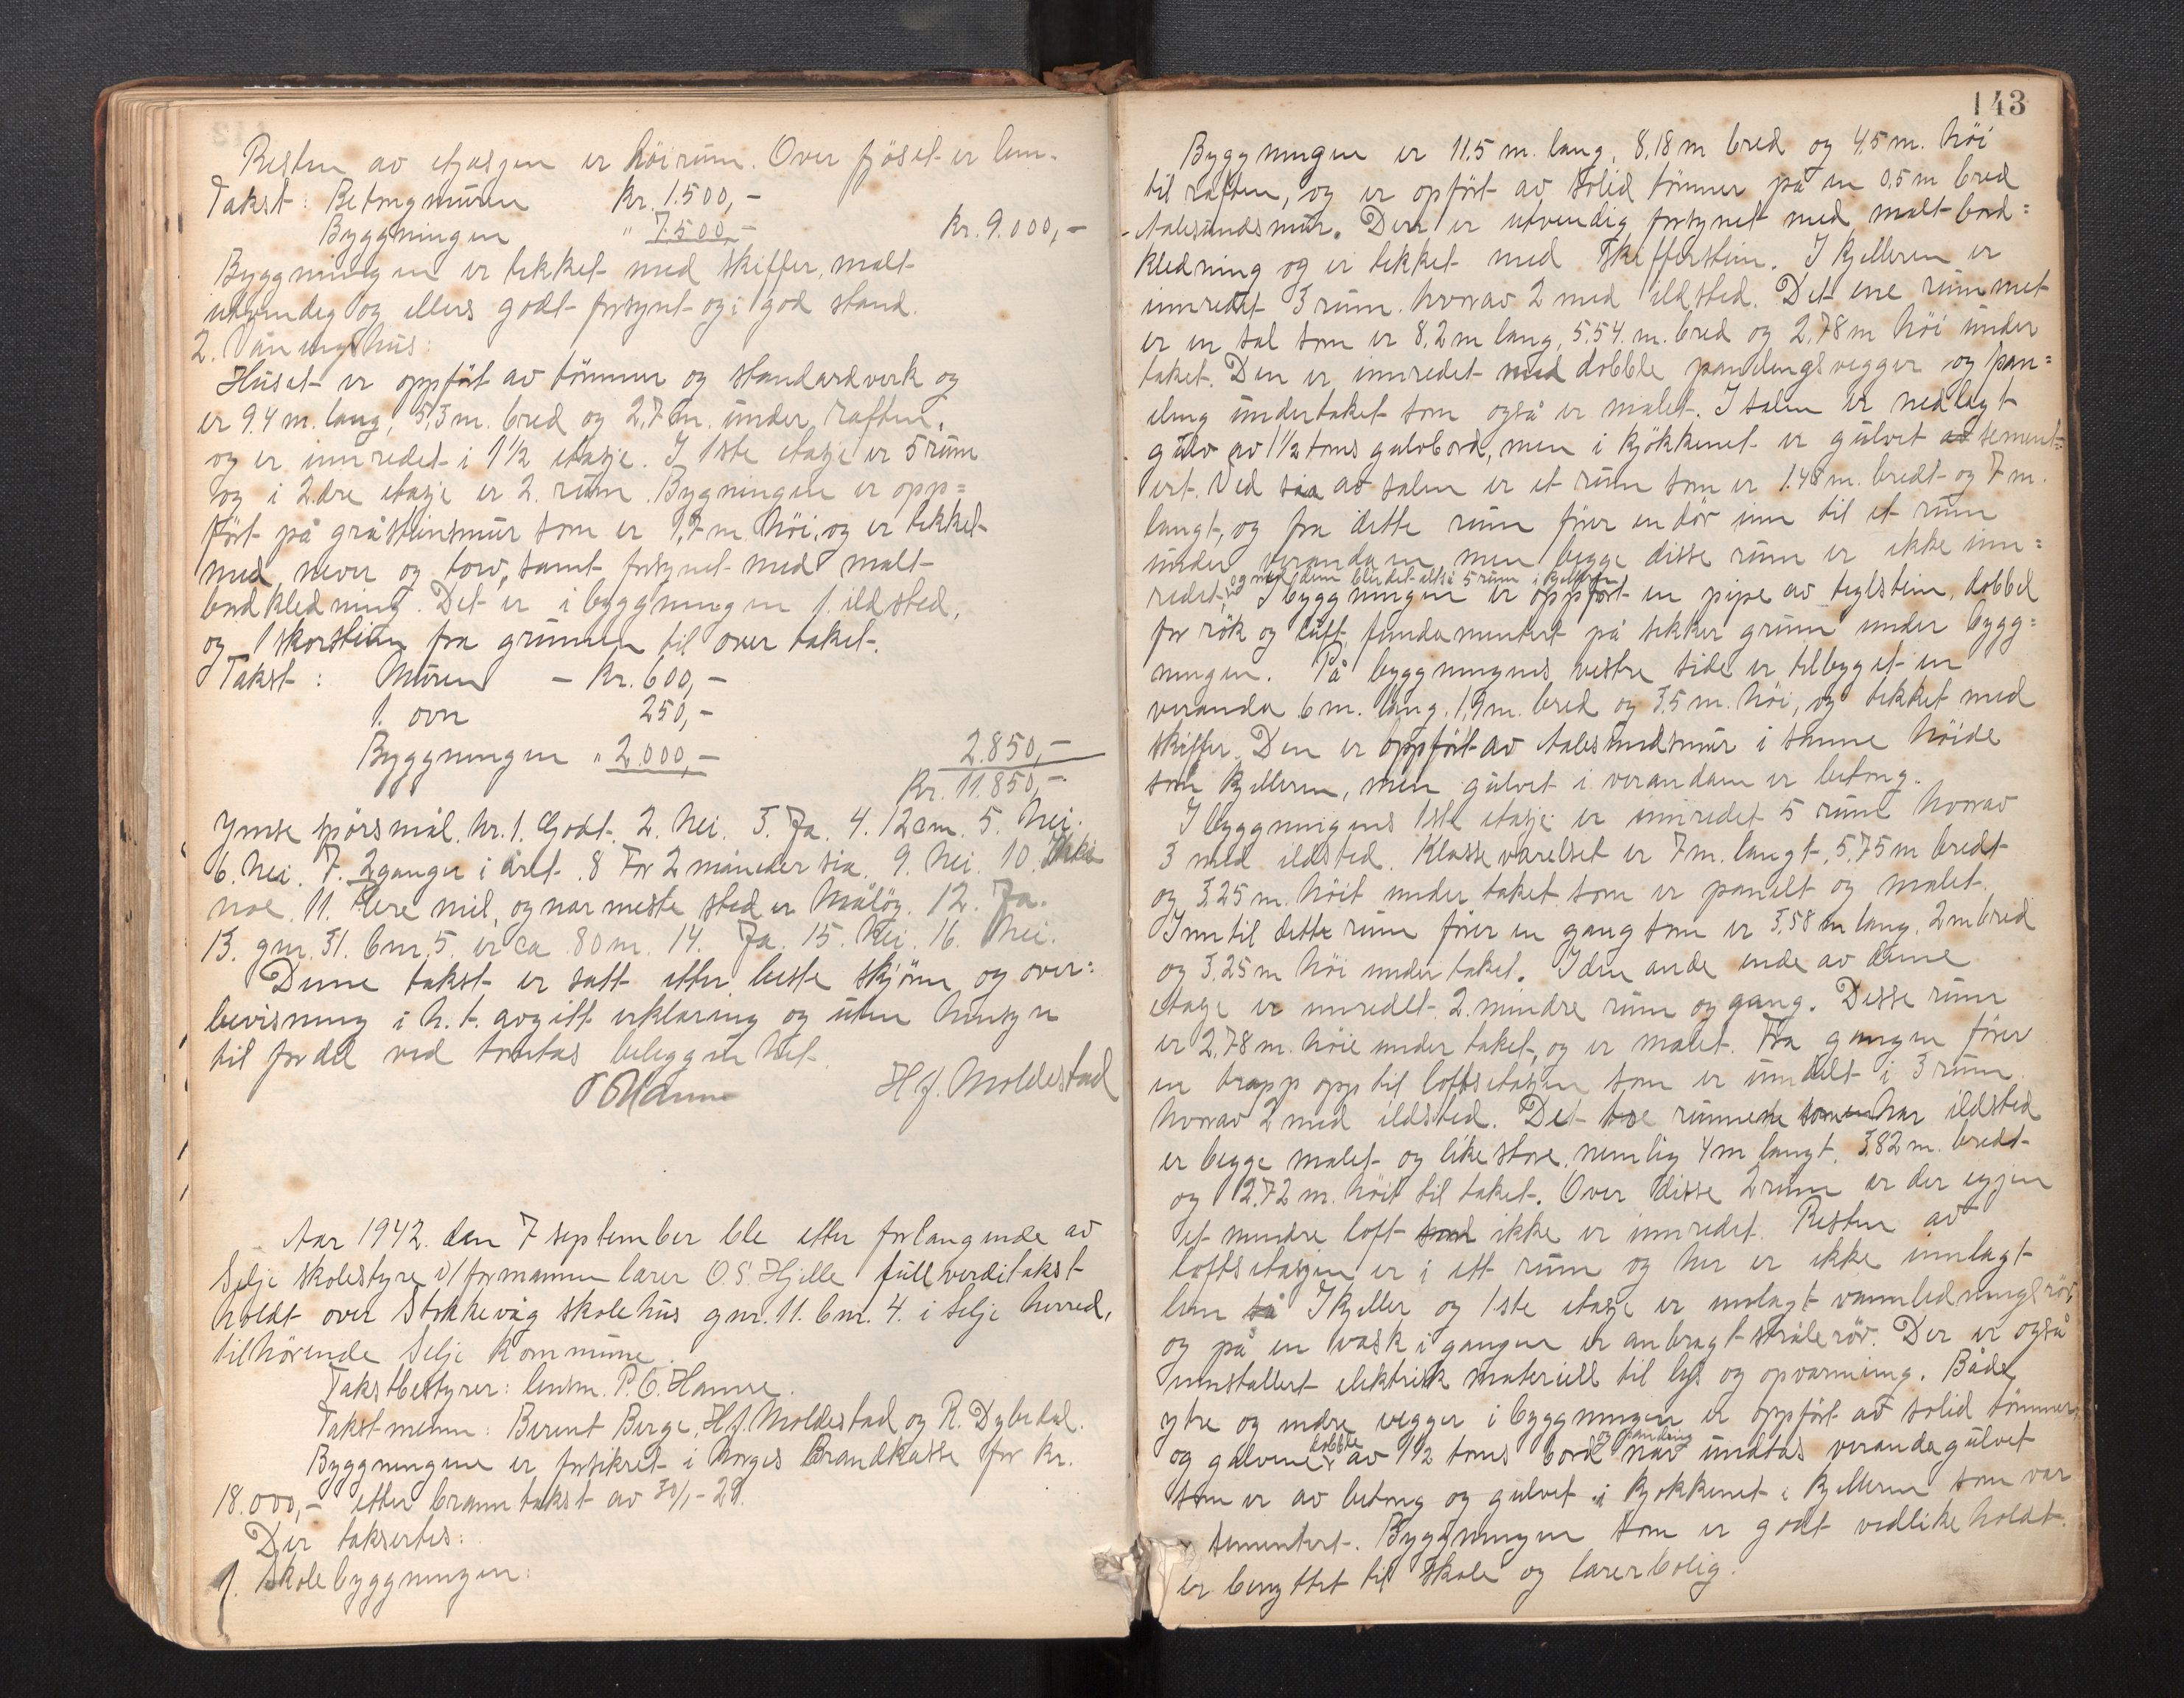 Resten av etasjen er höirum. Over fjöset er lem.
Takst: Betongmuren Kr. 1.500,-
Byggningen " 7.500,- Kr. 9.000,-
Byggningen er tekket med skiffer, malt
utvendig og ellers godt forsynt og i god stand.
2. Vaningshus:
Huset er oppfört av tömmer og standardverk og
er 9.4 m. lang, 5,3 m. bred og 2,76m. under raften,
og er innredet i 1½ etasje. I 1ste etasje er 5 rum
og i 2dre etasje er 2. rum. Bygningen er opp=
fört på gråsteinsmur som er 1,7 m. höi, og er tekket
med never og torv, samt forsynet med malt
bordkledning. Det er i byggningen 1. ildsted,
og 1 skorstein fra grunnen til over taket.
Takst: Muren - Kr. 600,-
1. ovn 250,-
Byggningen " 2.000,- 2.850,-
Kr. 11.850,-
Ymse spörsmål. Nr. 1. Godt. 2. Nei. 3. Ja. 4. 12cm. 5. Nei.
6. Nei. 7. 2 ganger i året. 8 For 2 måneder sia. 9. Nei. 10. Ikke
noe. 11. Flere mil, og nærmeste sted er Måløy. 12. Ja.
13. gnr. 31. bnr. 5. er ca 80m. 14. Ja. 15. Nei. 16. Nei.
Denne takst er satt etter beste skjönn og over=
bevisning i h. t. avgitt erklæring og uten hensyn
til fordel ved tomtas beliggenhet.
P O Hamre H J. Moldestad
Aar 1942. den 7 september ble etter forlangende av
Selje skolestyre v/ formannen lærer O. S. Hjelle fullverditakst
holdt over Stokkevåg skolehus gnr. 11. bnr. 4. i Selje herred,
tilhörende Selje Kommune.
Takstbestyrer: lensm. P. O. Hamre.
Takstmenn: Berent Berge, H.J. Moldestad og R. Dybedal.
Byggningene er forsikret i Norges Brandkasse for Kr.
18.000,- etter branntakst av 30/1-28.
Der taksertes:
1. Skolebyggningen:
143
Byggningen er 11.5 m. lang, 8,18 m bred og 4.5 m. höi
til raften, og er opfört av solid tömmer på en 0.5 m bred
Aalesundsmur. Den er utvendig forsynet med malt bord=
kledning og er tekket med skifferstein. I kjelleren er
innredet 3 rum. hvorav 2 med ildsted. Det ene rummet
er en sal som er 8,2 m lang, 5,54. m. bred og 2,78 m höi under
taket. Den er innredet med dobble panelingsvegger og pan=
eling under taket som også er malet. I salen er nedlagt
gulv av 1½ toms gulvbord, men i kjökkenet er gulvet av sement=
ert. Ved sia av salen er et rum som er 1.48 m. bredt og 7 m.
langt, og fra dette rum förer en dör inn til et rum
under verandaen men begge disse rum er ikke inn=
redet, og med dem blir det altså 5 rum i kjelleren
I byggningen er oppfört en pipe av teglstein, dobbel
for rök og luft, fundamentert på sikker grunn under bygg=
ningen. På byggningens vestre side er tilbygget en
veranda 6 m. lang, 1,9 m. bred og 3.5 m. höi, og tekket med
skiffer. Den er oppfört av Aalesundsmur i samme höide
som kjelleren, men gulvet i verandaen er betong.
I byggningens 1ste etasje er innredet 5 rum hvorav
3 med ildsted. Klasseværelset er 7 m. langt, 5,75 m bredt
og 3.25 m. höit under taket som er panelt og malet.
Inn til dette rum förer en gang som er 3,58 m lang, 2 m bred
og 3.25 m höi under taket. I den ande ende av denne
etage er innredet 2. mindre rum og gang. Disse rum
er 2,78 m. höie under taket, og er malet. Fra gangen förer
en trapp opp til loftsetasjen som er inndelt i 3 rum
hvorav 2 med ildsted. Det toe rummene som har ildsted
er begge malet og like store, nemlig 4 m langt, 3,82 m. bredt
og 2.72 m. höit til taket. Over disse 2 rum er der igjen
et mindre loft som ikke er innredet. Resten av
loftsetasjen er i ett rum og her er ikke innlagt
lem så I kjeller og 1ste etasje er innlagt vannledningsrör,
og på en vask i gangen er anbragt strålerör. Der er også
innstallert elektrisk materiell til lys og opvarming. Både
ytre og indre vegger i byggningen er oppfört av solid tömmer,
og gulvene dobble av 1½ toms bord og paneling når undtas verandagulvet
som er av betong og gulvet i kjökkenet i kjelleren som var
sementert. Byggningen som er godt vedlikeholdt
er benyttet til skole og lærerbolig.